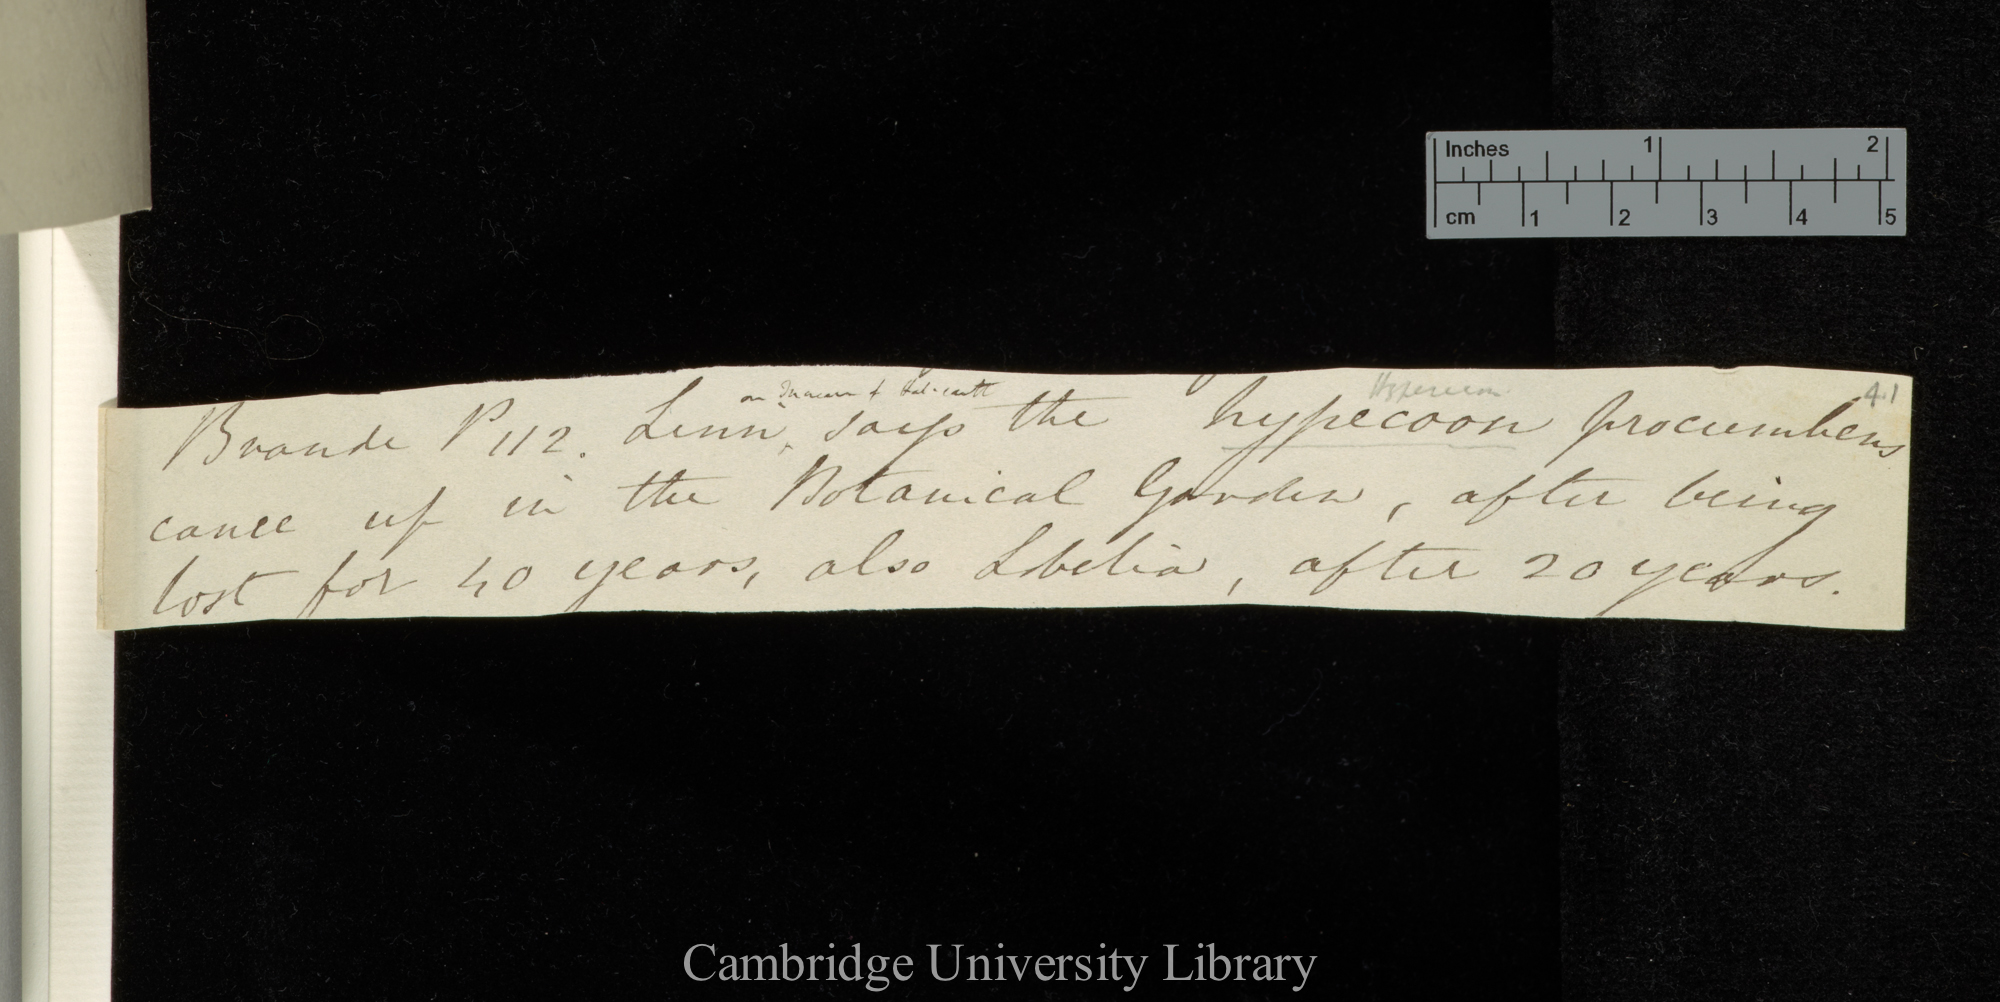 Inches 1 2
cm 1 2 3 4 5
41
Hypecoon
on
Brande P 112. Linn, says the hypecoon procumbens
came up in the Botanical Garden, after being
lost for 40 years, also Lobelia, after 20 years.
Cambridge University Library